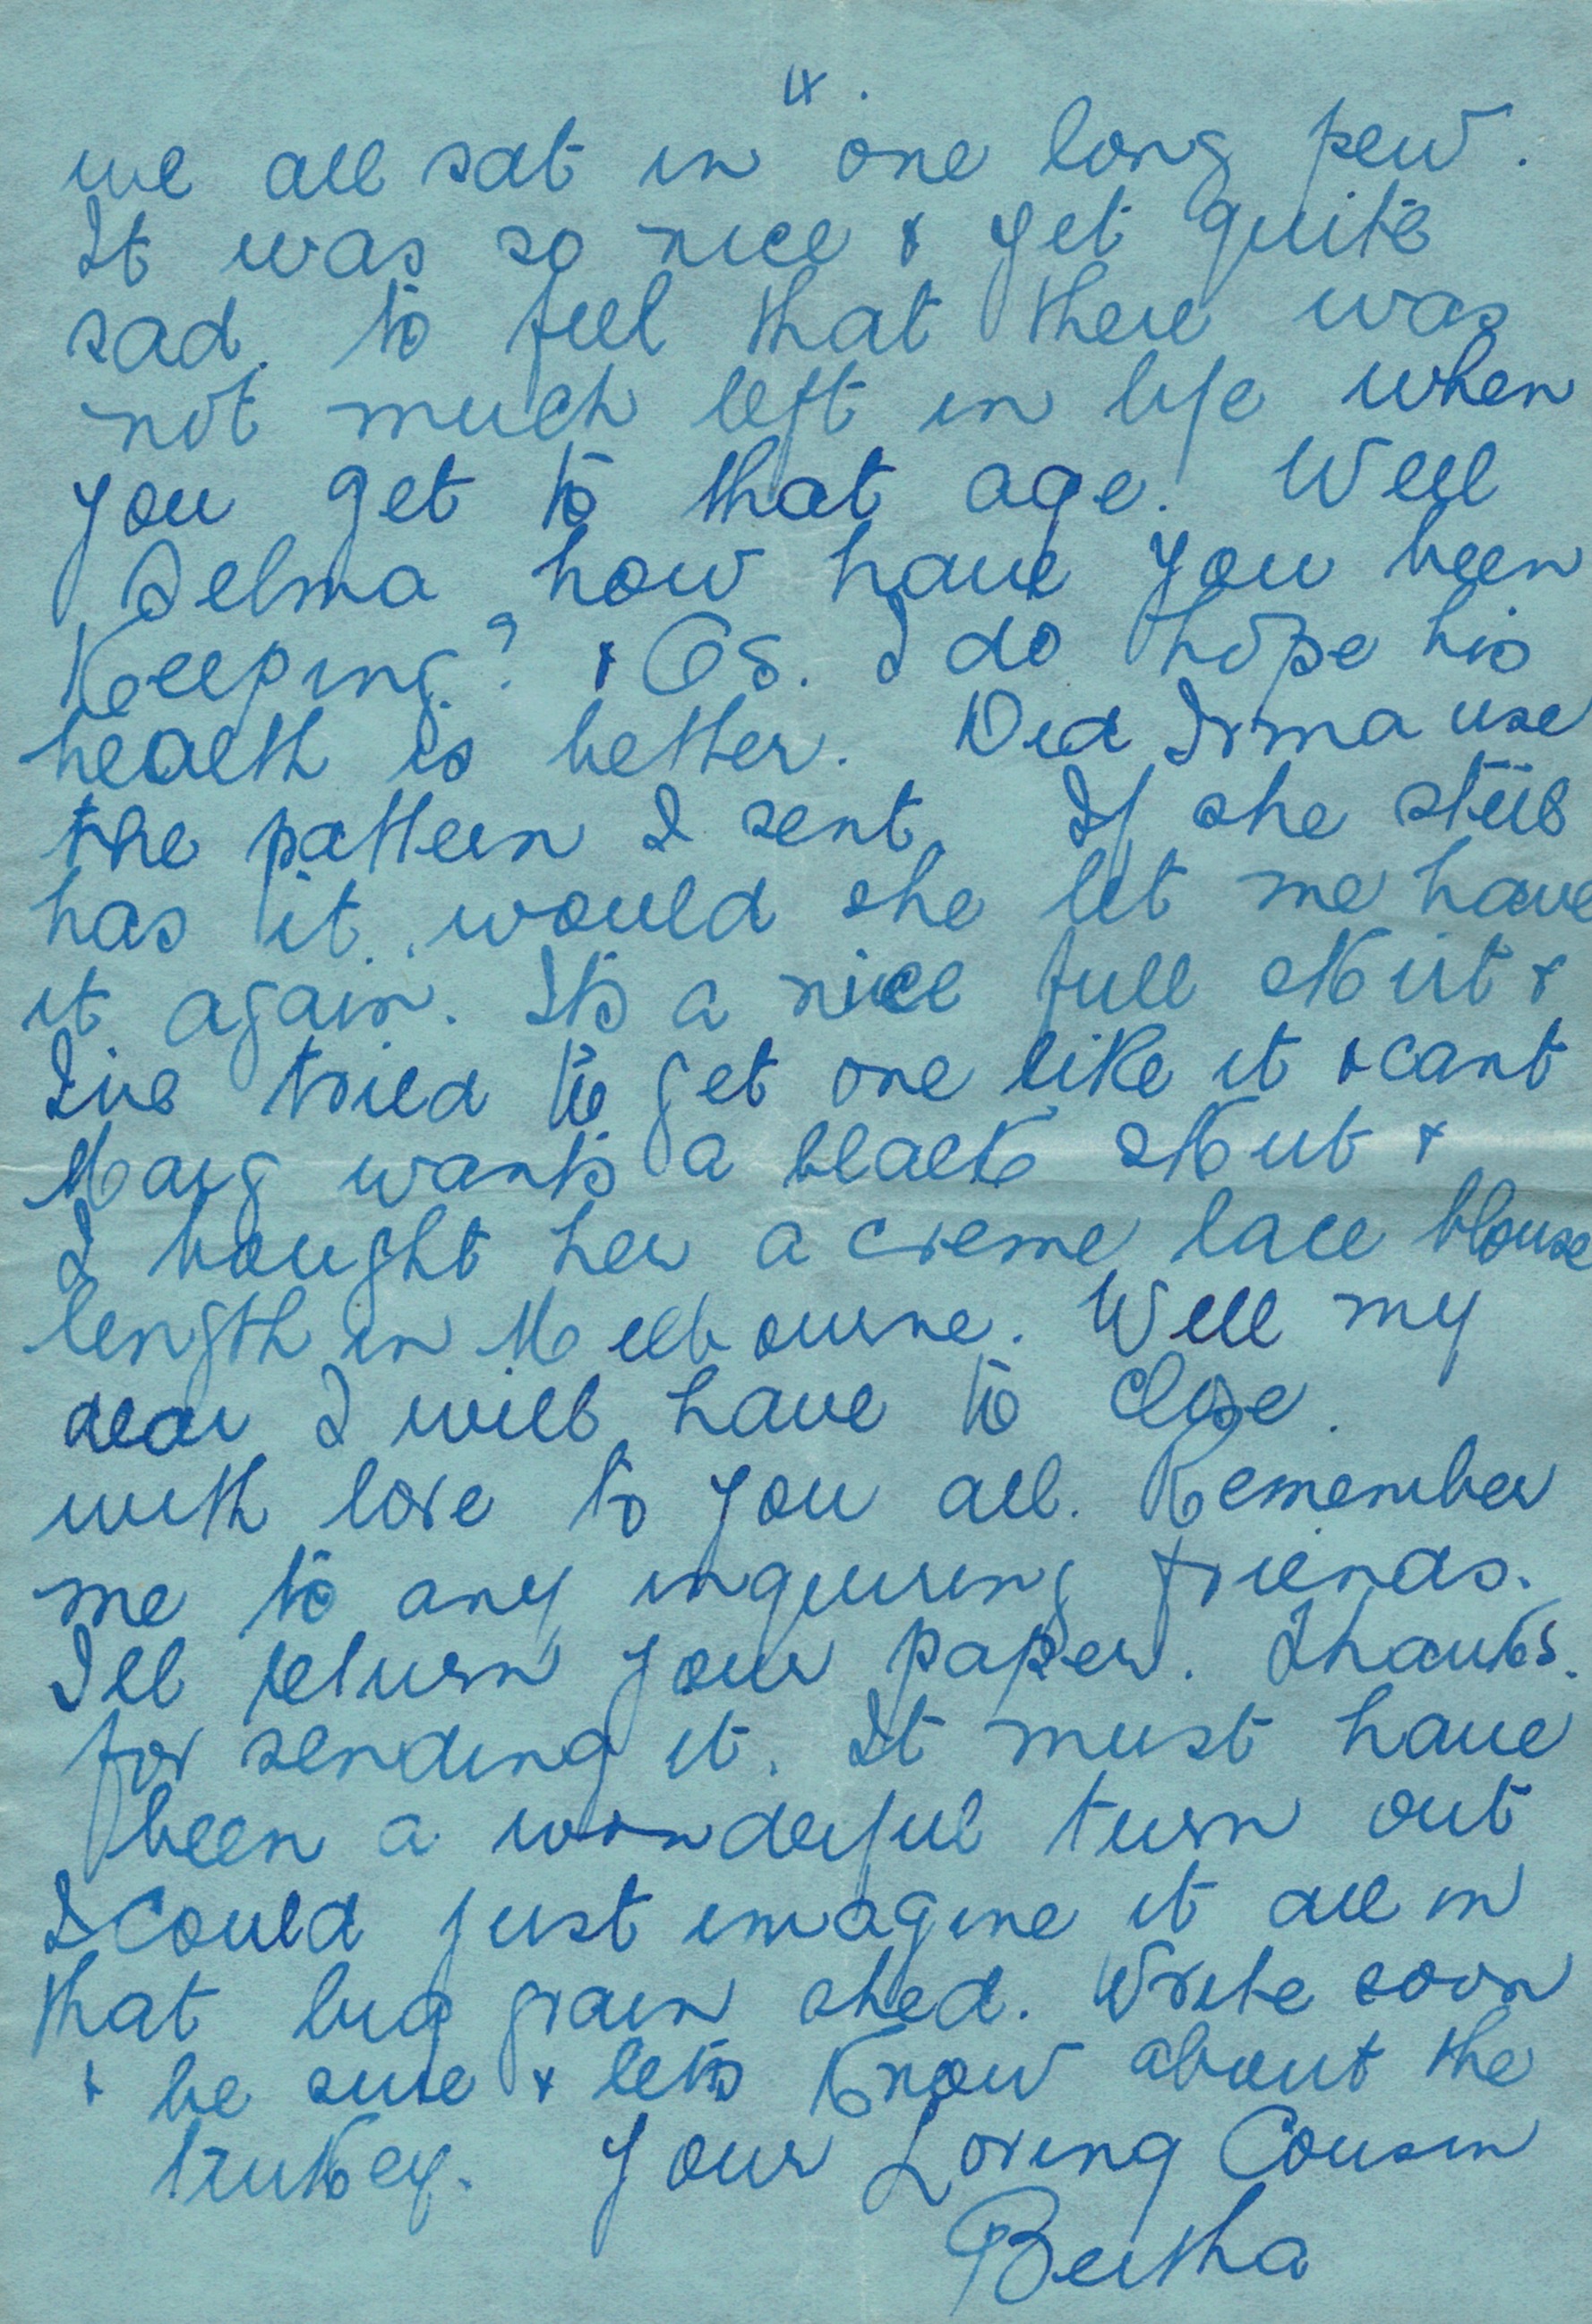 4.
we all sat in one long pew.
It was so nice & yet quite
sad. to feel that there was
not much left in life when
you get to that age. Well
Selma how have you been
Keeping? & Os. I do hope his
health is better. Did Irma use
the pattern I sent. If she still
has it. would she let me have
it again. Its a nice full skirt &
Ive tried to get one like it & cant
Marg wants a black skirt &
I bought her a creme lace blouse
length in Melbourne. Well my
dear I will have to close.
with love to you all. Remember
me to any inquiring friends.
Ill return your paper. Thanks.
for sending it. It must have
been a wonderful turn out
I could just imagine it all in
that big grain shed. Write soon
& be sure & lets know about the
turkey. Your Loving Cousin
Bertha